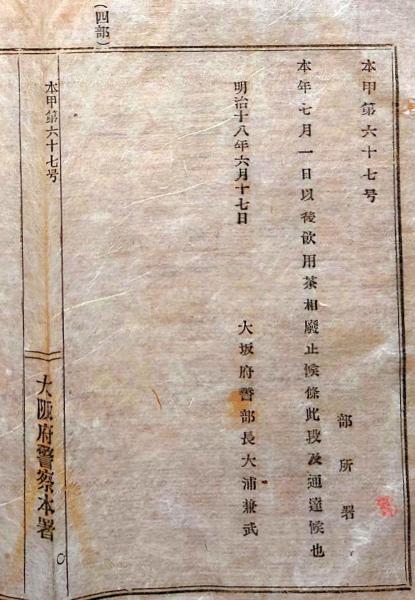 本甲第六十七号
部所署
本年七月一日以後飲用茶相廢止候條此段及通達候也
明治十八年六月十七日
大坂府警部長大浦兼武
(四部)
本甲第六十七号
大阪府警察本署